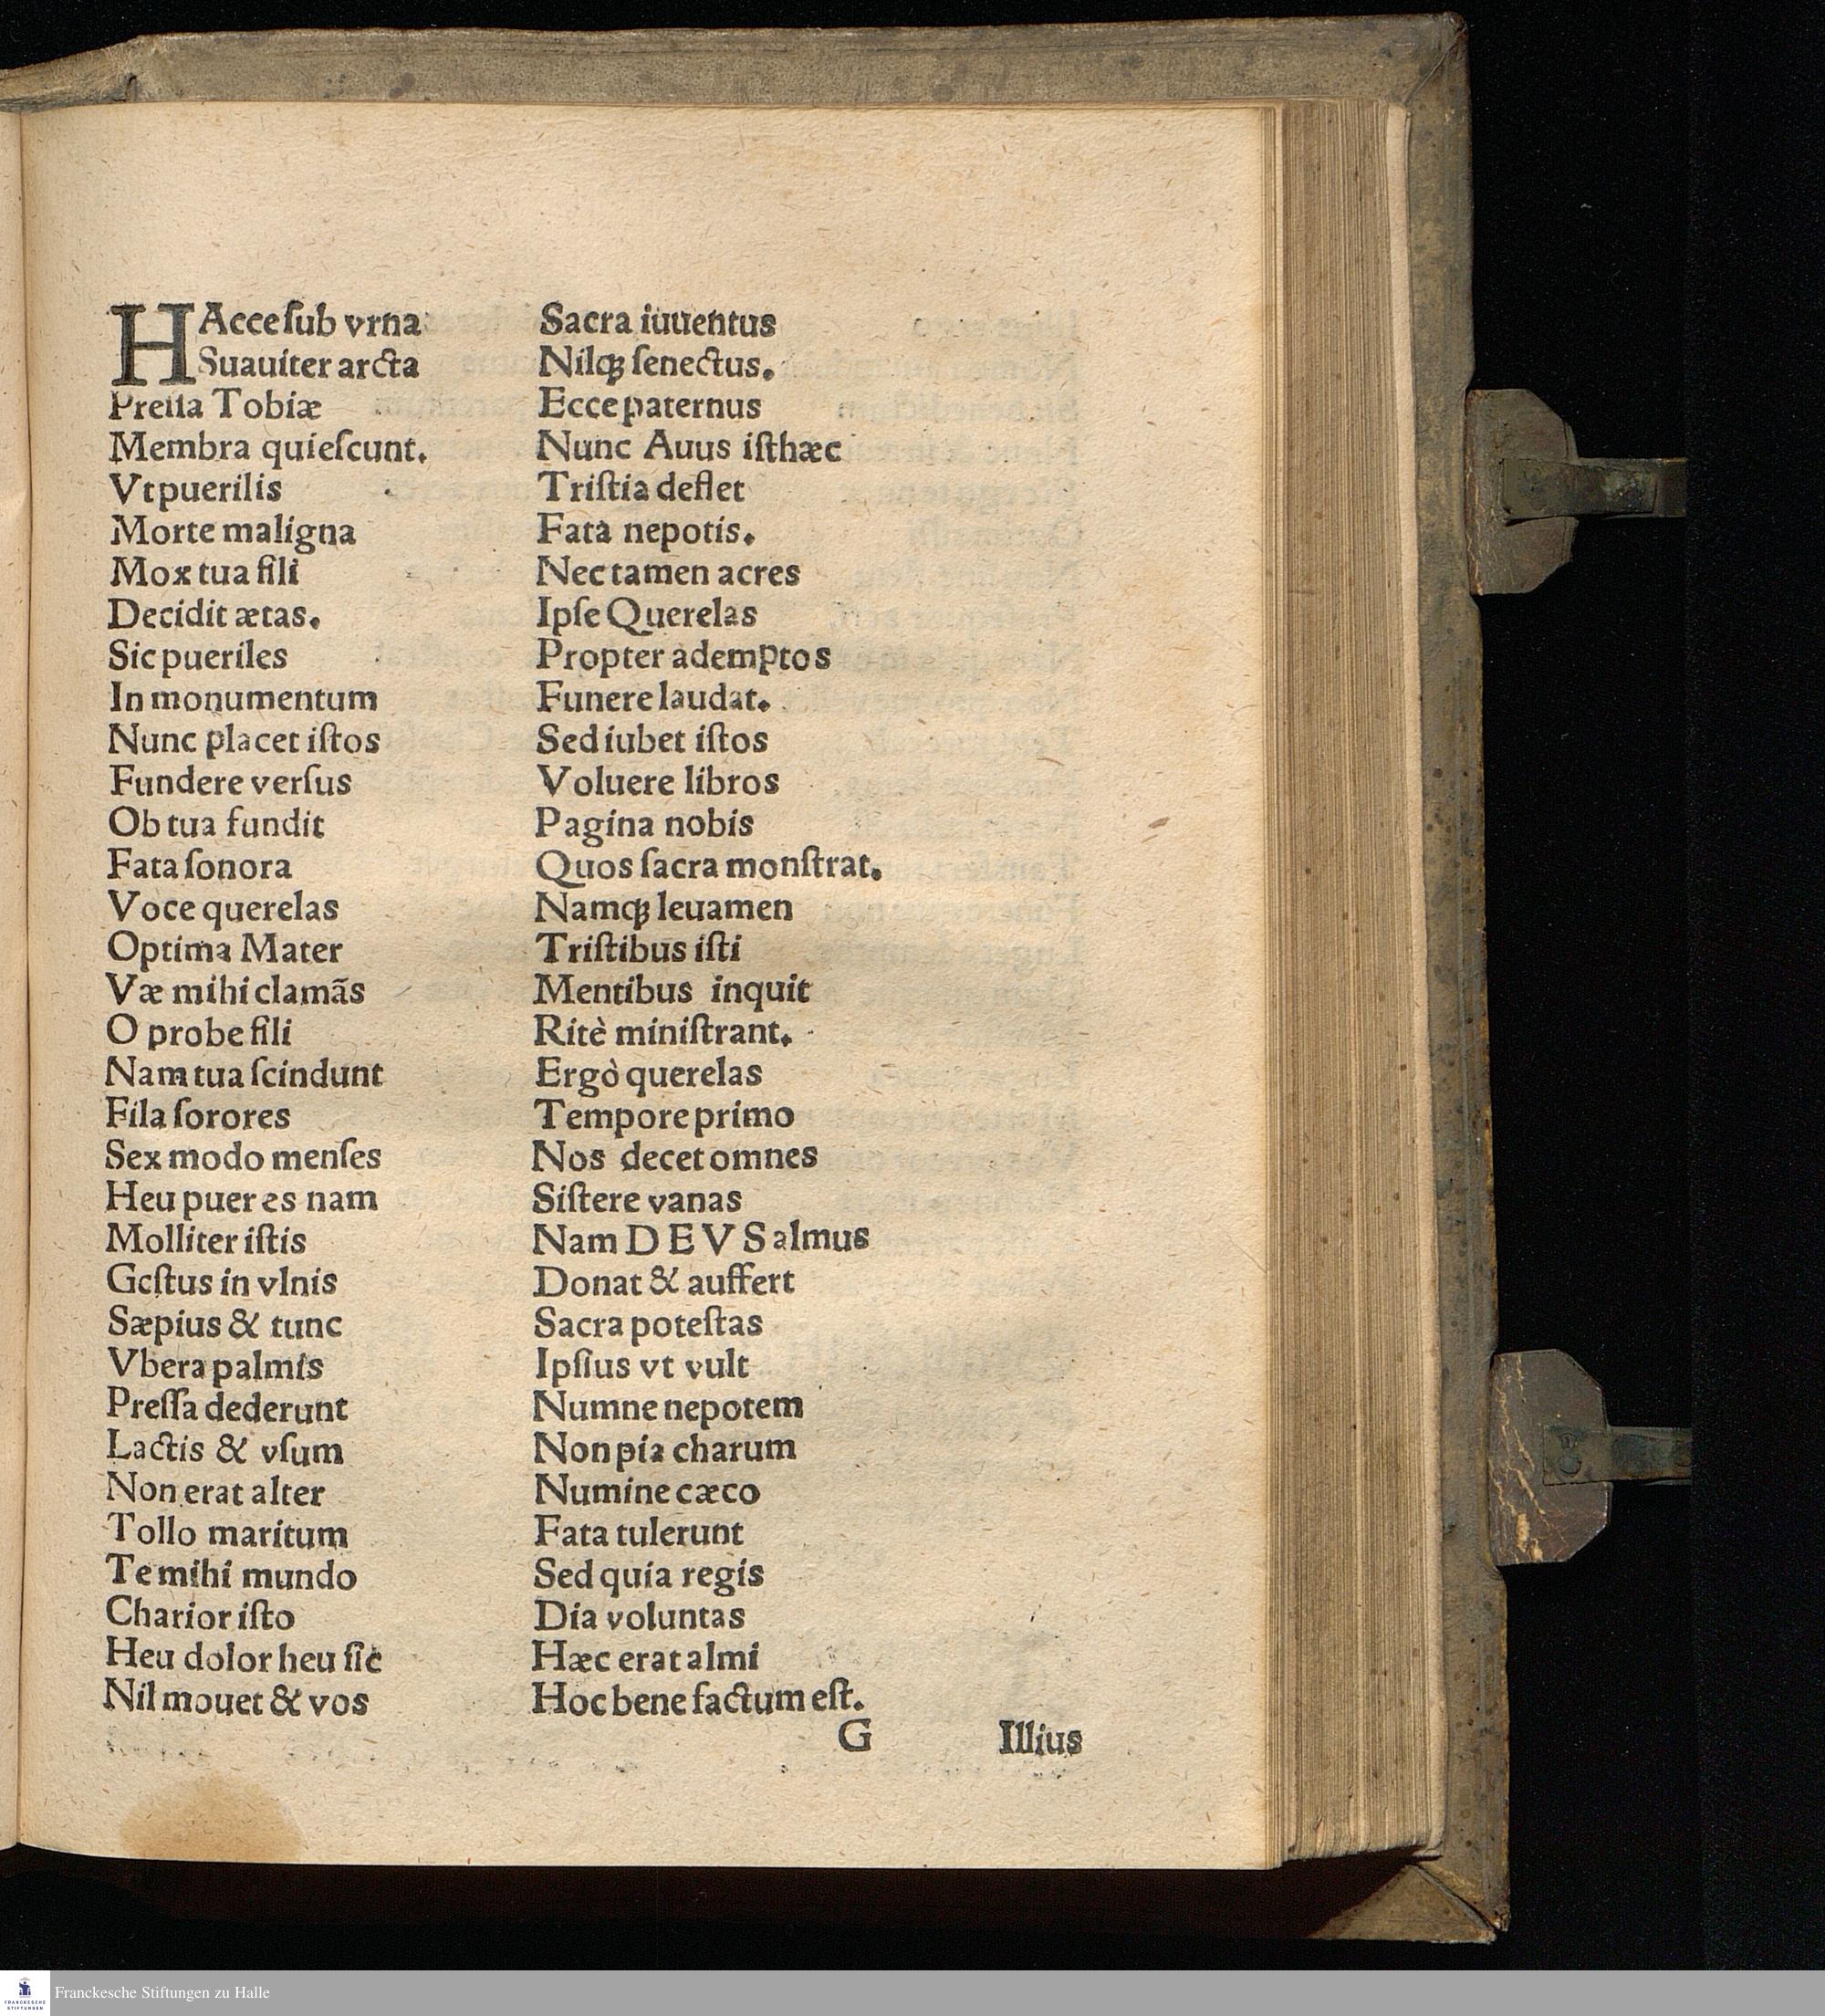 HAcce ſub vrna
Suauiter arcta
Preſſa Tobiæ
Membra quieſcunt.
Vt puerilis
Morte maligna
Mox tua fili
Decidit ætas.
Sic pueriles
In monumentum
Nunc placet iſtos
Fundere verſus
Ob tua fundit
Fata ſonora
Voce querelas
Optima Mater
Væ mihi clamãs
O probe fili
Nam tua ſcindunt
Fila ſorores
Sex modo menſes
Heu puer es nam
Molliter iſtis
Geſtus in vlnis
Sæpius & tunc
Vbera palmis
Preſſa dederunt
Lactis & vſum
Non erat alter
Tollo maritum
Te mihi mundo
Charior iſto
Heu dolor heu ſic
Nil mouet & vos
Sacra iuuentus
Nilqꝫ ſenectus.
Ecce paternus
Nunc Auus iſthæc
Triſtia deflet
Fata nepotis.
Nec tamen acres
Ipſe Querelas
Propter ademptos
Funere laudat.
Sed iubet iſtos
Voluere libros
Pagina nobis
Quos ſacra monſtrat.
Namqꝫ leuamen
Triſtibus iſti
Mentibus inquit
Ritè miniſtrant.
Ergò querelas
Tempore primo
Nos decet omnes
Siſtere vanas
Nam DEVS almus
Donat & auffert
Sacra poteſtas
Ipſius vt vult
Numne nepotem
Non pia charum
Numine cæco
Fata tulerunt
Sed quia regis
Dia voluntas
Hæc erat almi
Hoc bene factum eſt.
G Illius
Franckesche Stiftungen zu Halle
FRANCKESCHE
STIFTUNGEN